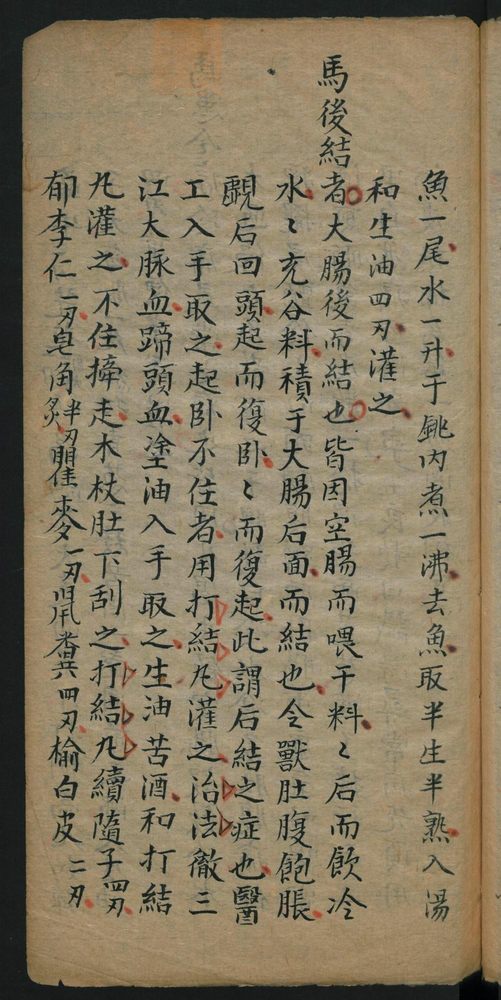 魚一尾水一升于銚内煮一沸去魚取半生半熟入湯
和生油四刄灌之
馬後結者大腸後而結也皆因空腸而喂干料〻后而飲冷
水〻充谷料積于大腸后面而結也令獸肚腹飽脹
覷后回頭起而復卧〻而復起此謂后結之症也醫
工入手取之起卧不住者用打結丸灌之治法徹三
江大脉血蹄頭血塗油入手取之生油苦酒和打結
丸灌之不住撁走木杖肚下刮之打結丸續隨子四刄
郁李仁一刄皂角半刄炙瞿麥一刄鼠糞四刄榆白皮二刄